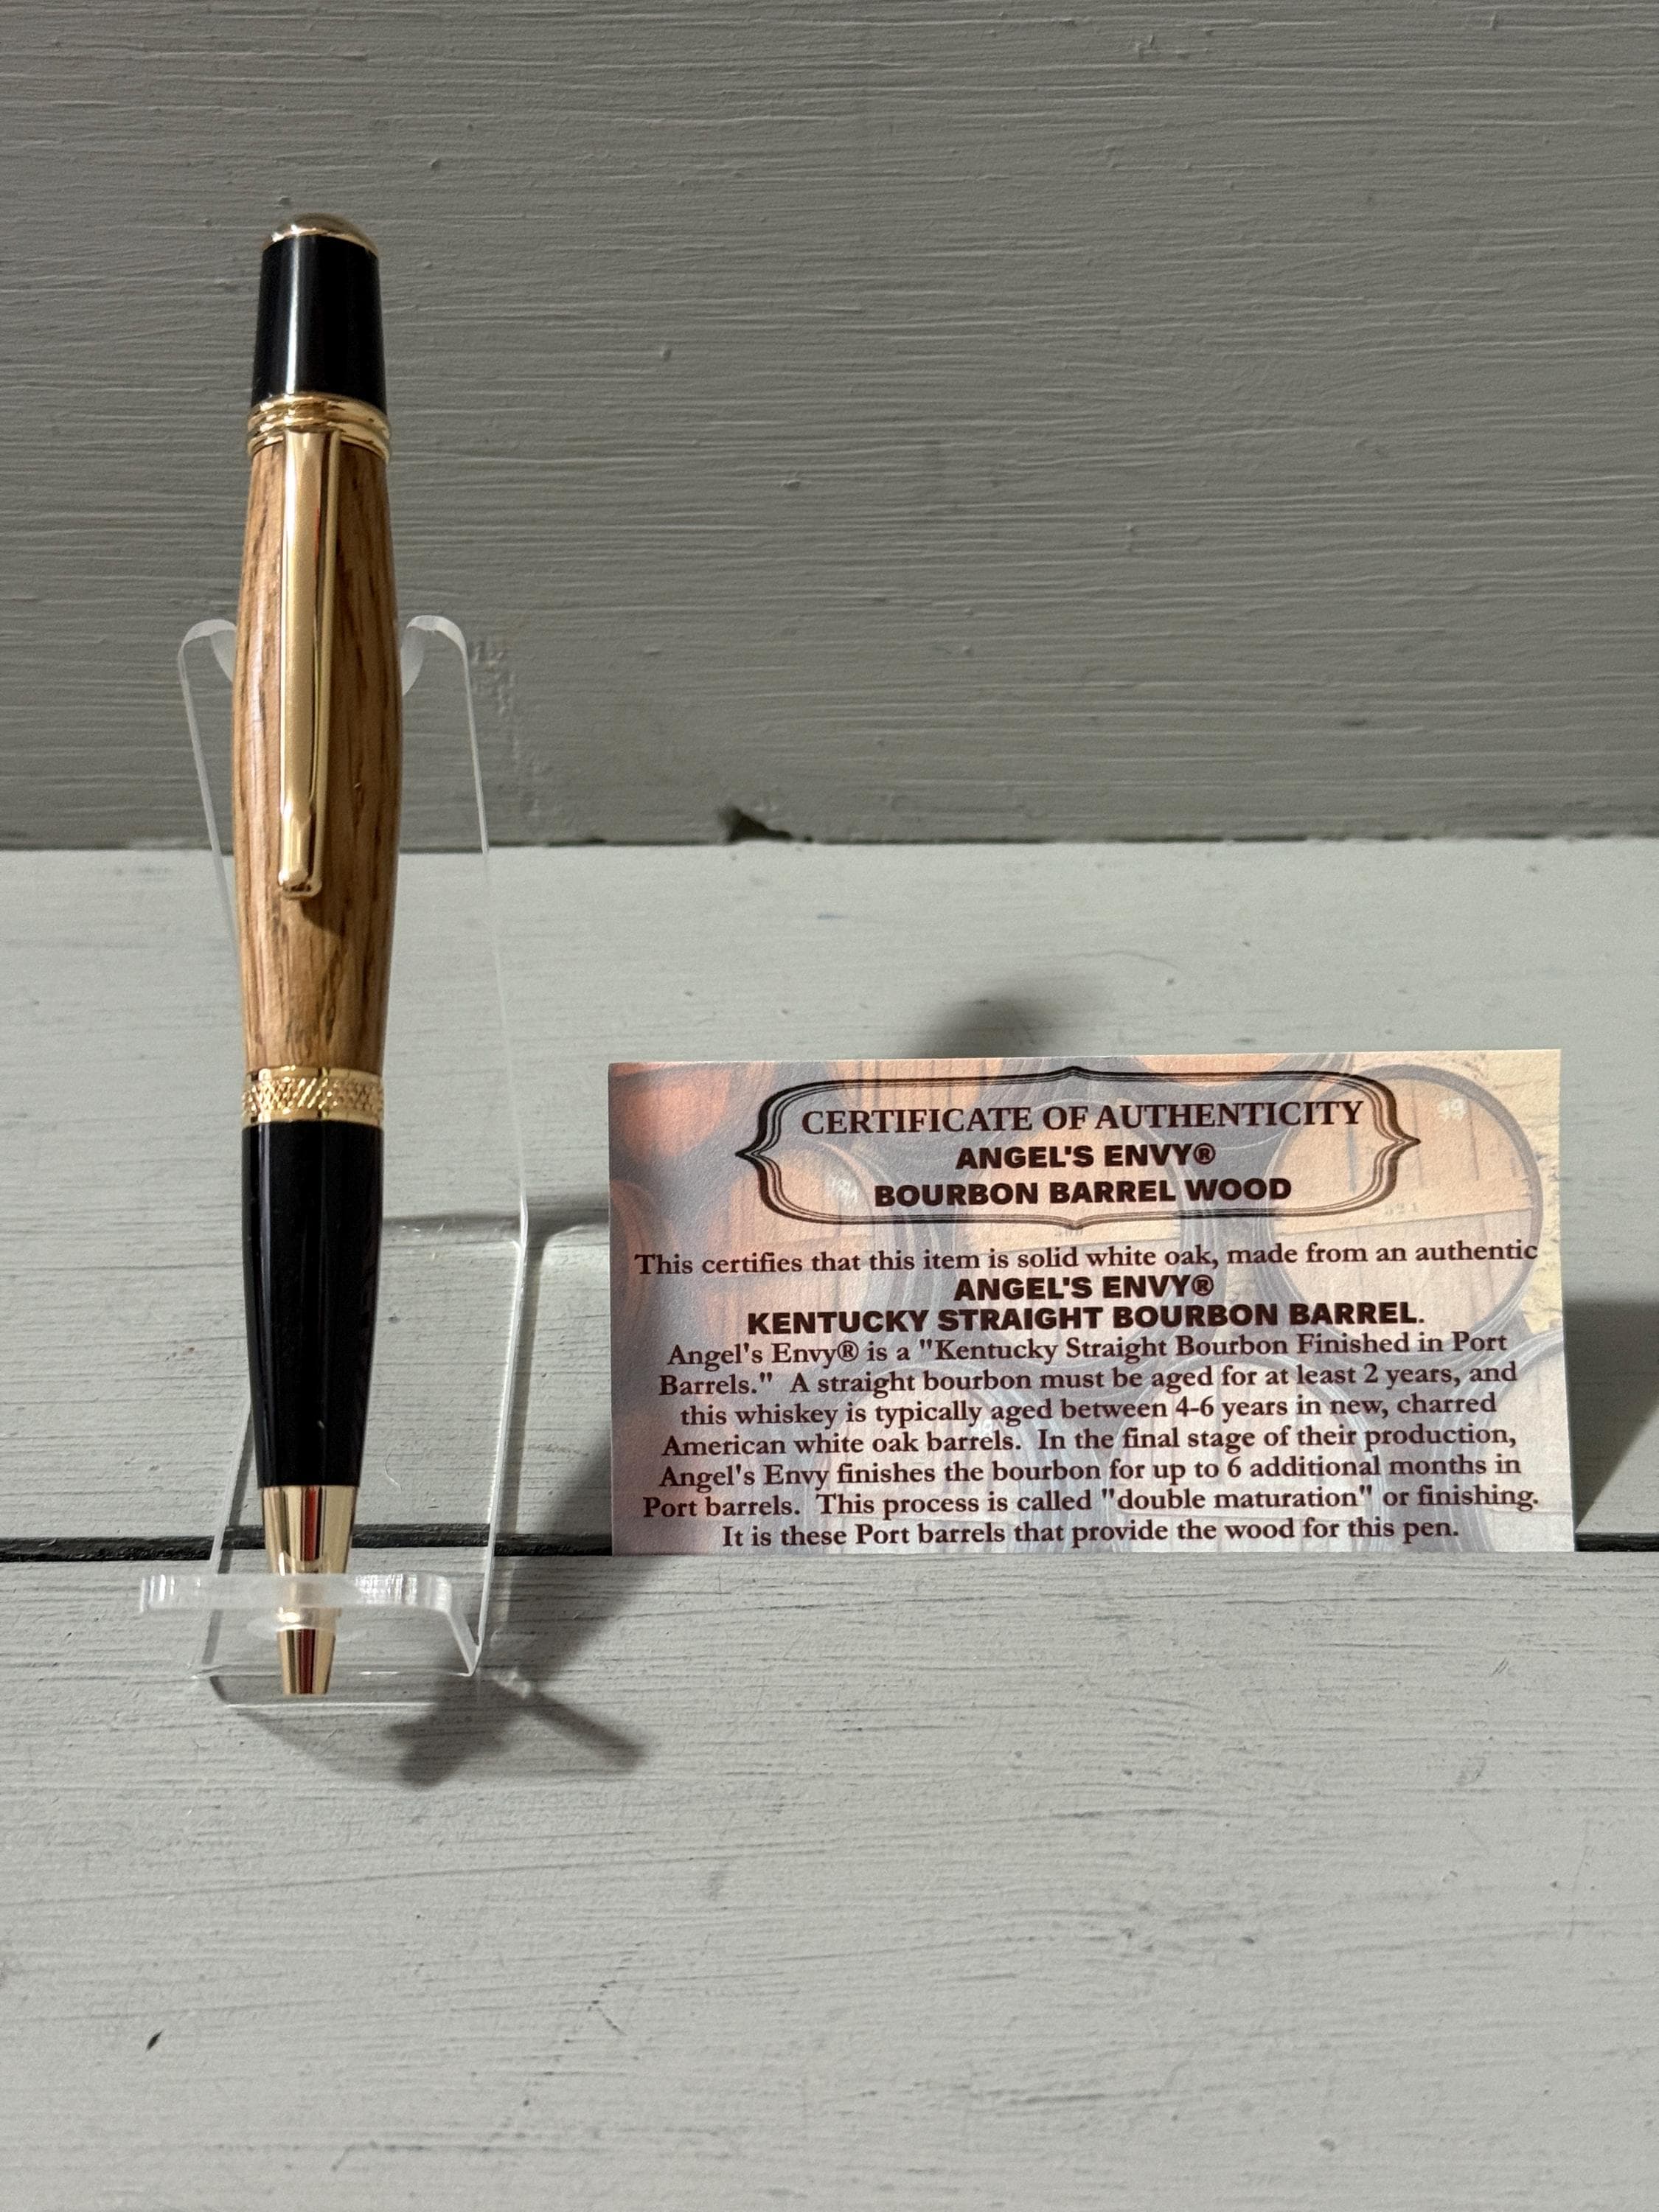 CERTIFICATE OF AUTHENTICITY
ANGEL'S ENVY®
BOURBON BARREL WOOD
This certifies that this item is solid white oak, made from an authentic
ANGEL'S ENVY®
KENTUCKY STRAIGHT BOURBON BARREL.
Angel's Envy® is a "Kentucky Straight Bourbon Finished in Port
Barrels."  A straight bourbon must be aged for at least 2 years, and
this whiskey is typically aged between 4-6 years in new, charred
American white oak barrels.  In the final stage of their production,
Angel's Envy finishes the bourbon for up to 6 additional months in
Port barrels.  This process is called "double maturation" or finishing.
It is these Port barrels that provide the wood for this pen.